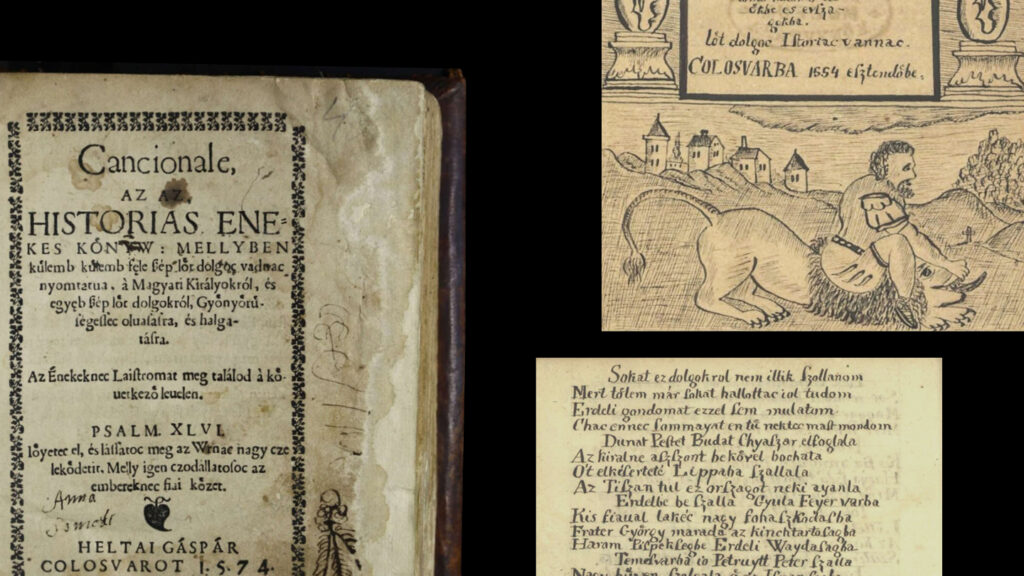 Cancionale,
AZ AZ,
HISTORIAS ENE-
KES KÖNYW: MELLYBEN
külemb külemb féle ßép löt dolgoc vadnac
nyomtatua, à Magyari Királyokról, és
egyéb ßép löt dolgokról, Gyönyörü-
ségessec oluasásra, és halga-
tásra.
Az Énekeknec Laistromat meg találod à kö-
uetkezö leuelen.
PSALM. XLVI.
Iöyetec el, és lássatoc meg az Wrnac nagy cze
leködetit. Melly igen czodállatosoc az
embereknec fiai közet.
Anna
HELTAI GÁSPÁR
COLOSVAROT 1.5.74.
gokba.
löt dolgoc Istoriac vannac.
COLOSVARBA 1554 esztendöbe.
Sokat ez dolgokrol nem illik szollanom
Mert tölem már sokat hallottac iol tudom
Erdeli gondomat ezzel sem mulatom
Chac ennec sommayat en tü nektec mast mondom
Dunat Pestet Budat Chyaszar elfoglala
Az kiralne aszszont bekövel bochata
Ot elkeserteté Lippaba szallala
Az Tiszan tul ez orszagot neki ayanla
Erdelbe be szalla Gyula Feyer varba
Kis fiaual lakéc nagy fohaszkodasba
Frater György marada az kinchtartosagba
Haram Pispeksegbe Erdeli Waydasagba
Temesvarba io Petruytt Peter szalla